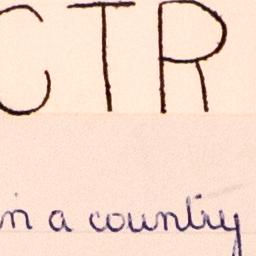 CTR
in a country